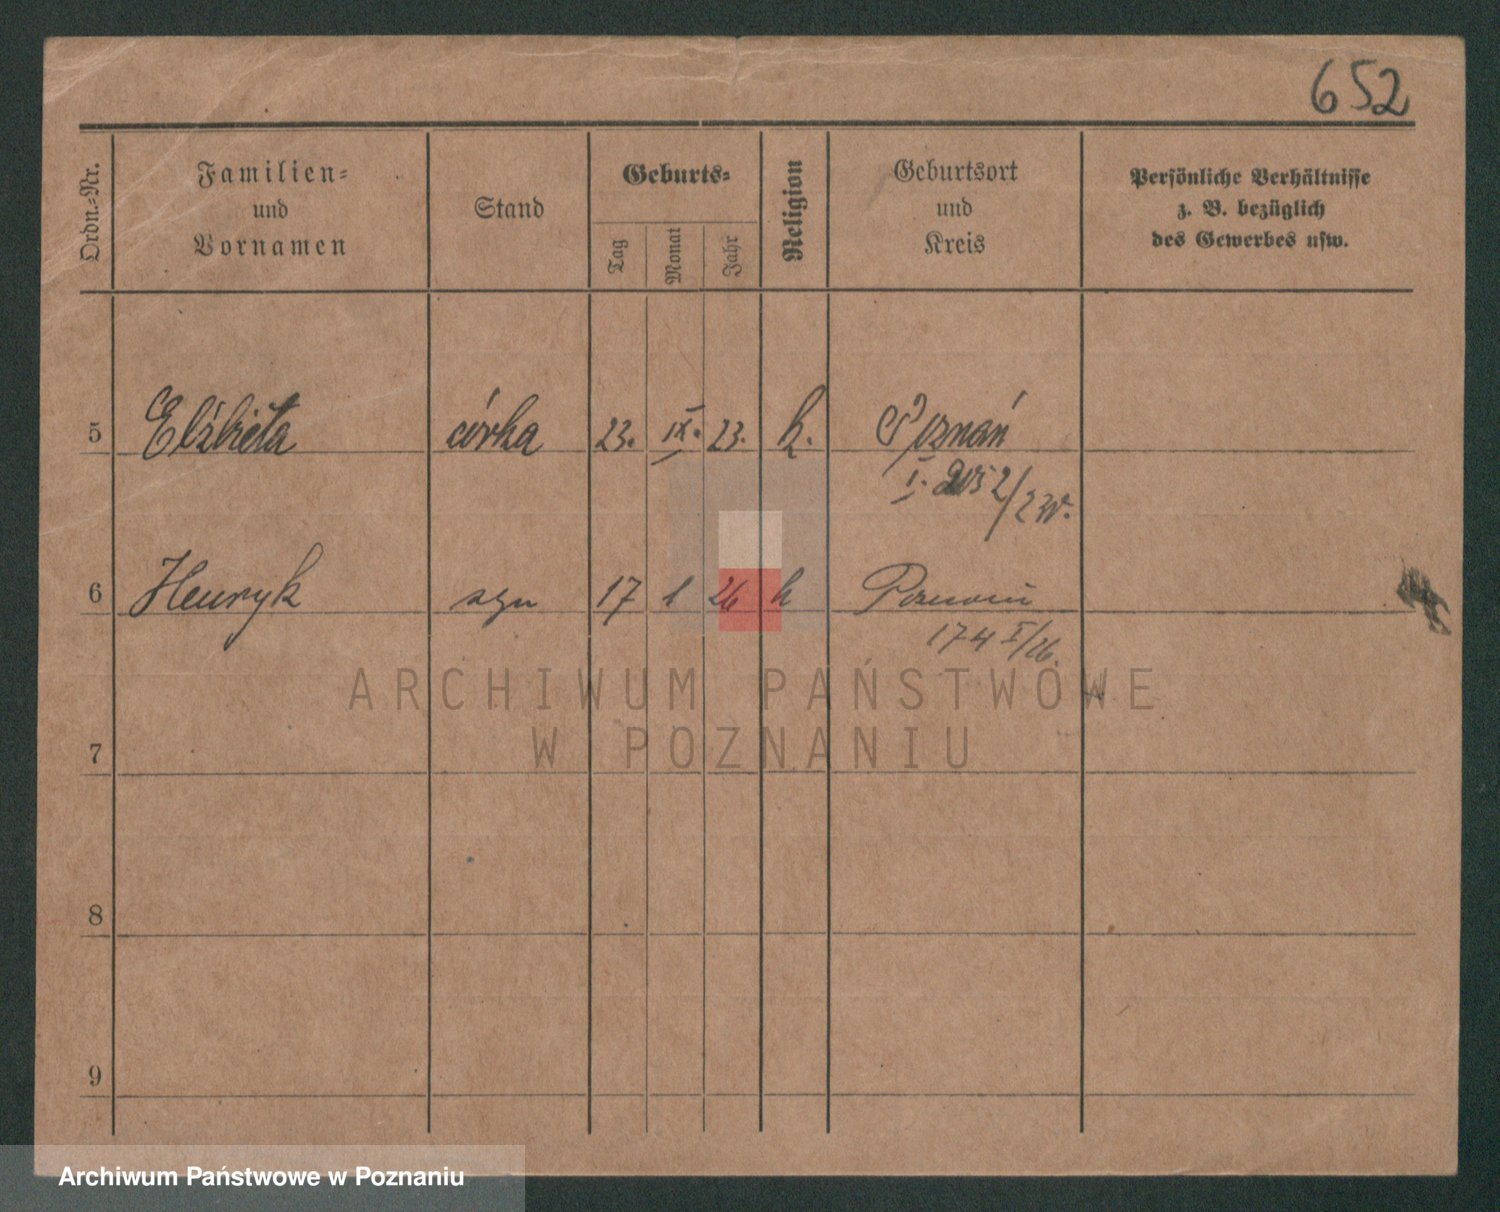 652
Ordn.-Nr.
Familien-
und
Vornamen
Stand
Geburts-
Tag
Monat
Jahr
Religion
Geburtsort
und
Kreis
Persönliche Verhältnisse
z. B. bezüglich
des Gewerbes usw.
5 Elżbieta córka 23. IX. 23. k. Poznań
6 Henryk syn 17 1 26 k Poznań
174 I/26.
ARCHIWUM PAŃSTWOWE
W POZNANIU
7
8
9
Archiwum Państwowe w Poznaniu